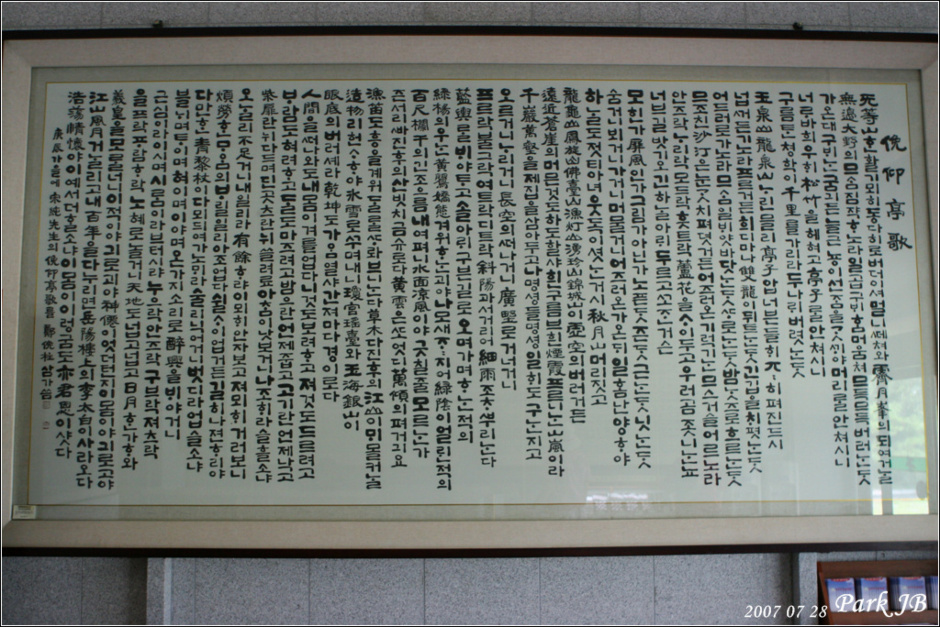 俛仰亭歌
无等山 ᄒᆞᆫ 활기 뫼희 동다히로 버더 이셔 멀니 ᄯᅦ쳐와 霽月峯의 되여거ᄂᆞᆯ
無邊大野의 므ᄉᆞᆷ 짐쟉 ᄒᆞ노라 일곱 구ᄇᆡ ᄒᆞᆷᄃᆡ 움쳐 므득므득 버럿ᄂᆞᆫ ᄃᆞᆺ
가온대 구ᄇᆡᄂᆞᆫ 굼긔 든 늘근 뇽이 선ᄌᆞᆷ을 ᄀᆞᆺ ᄭᆡ야 머리ᄅᆞᆯ 안쳐시니
너ᄅᆞ바회 우ᄒᆡ 松竹을 헤혀고 亭子ᄅᆞᆯ 안쳐시니
구름 ᄐᆞᆫ 청학이 千里를 가리라 두 ᄂᆞ릐 버렷ᄂᆞᆫ ᄃᆞᆺ
玉泉山 龍泉山 ᄂᆞ린 믈이 亭子 압 너븐 들ᄒᆡ 올올히 펴진 드시
넙ᄭᅥ든 기노라 프르거든 희디마나 雙龍이 뒤트ᄂᆞᆫ ᄃᆞᆺ 긴 깁을 ᄎᆡ 폇ᄂᆞᆫ ᄃᆞᆺ
어드러로 가노라 므ᄉᆞᆷ 일 ᄇᆡ얏바 ᄃᆞᆺᄂᆞᆫ ᄃᆞᆺ ᄯᆞ로ᄂᆞᆫ ᄃᆞᆺ 밤ᄂᆞᆺ즈로 흐르ᄂᆞᆫ ᄃᆞᆺ
므조친 沙汀은 눈ᄀᆞᆺ치 펴졋거든 어즈러온 기럭기ᄂᆞᆫ 므스거슬 어르노라
안즈락 ᄂᆞ리락 모드락 흣트락 蘆花을 ᄉᆞ이 두고 우러곰 좃니ᄂᆞᆫ뇨
너븐 길 밧기요 긴 하ᄂᆞᆯ 아ᄅᆡ 두르고 ᄭᅩᄌᆞᆫ 거슨
모힌가 屛風인가 그림가 아닌가 노픈 ᄃᆞᆺ ᄂᆞ즌 ᄃᆞᆺ 근ᄂᆞᆫ ᄃᆞᆺ 닛ᄂᆞᆫ ᄃᆞᆺ
숨거니 뵈거니 가거니 머물거니 어즈러온 가온ᄃᆡ 일홈 난 양ᄒᆞ야
하ᄂᆞᆯ도 젓티 아녀 웃독이 셧ᄂᆞᆫ 거시 秋月山 머리 짓고
龍龜山 鳳旋山 佛臺山 漁灯山 湧珍山 錦城山이 虛空의 버러거든
遠近 蒼崖의 머믄 것도 하도 할샤 흰 구름 브흰 煙霞 프르니ᄂᆞᆫ 山嵐이라
千巖 萬壑을 제 집을 삼아 두고 나명셩 들명셩 일ᄒᆡ도 구ᄂᆞᆫ지고
오르거니 ᄂᆞ리거니 長空의 ᄯᅥ나거니 廣野로 거너거니
프르락 블그락 여트락 디트락 斜陽과 서거지어 細雨조ᄎᆞ ᄲᅮ리ᄂᆞᆫ다
藍輿ᄅᆞᆯ ᄇᆡ야 ᄐᆞ고 솔 아ᄅᆡ 구븐 길로 오며 가며 ᄒᆞᄂᆞᆫ 적의
綠楊의 우ᄂᆞᆫ 黃鶯 嬌態 겨워 ᄒᆞᄂᆞᆫ괴야 나모 새 ᄌᆞᄌᆞ지어 綠陰이 얼린 적의
百尺 欄干의 긴 조으름 내여 펴니 水面 凉風이야 긋칠 줄 모르ᄂᆞᆫ가
즌 서리 ᄲᅡ진 후의 산 빗치 금슈로다 黃雲은 ᄯᅩ 엇디 萬頃의 펴거 디오
漁笛도 흥을 계워 ᄃᆞᆯ을 ᄯᆞ롸 브니ᄂᆞᆫ다 草木 다 진 후의 江山이 ᄆᆡ몰커ᄂᆞᆯ
造物이 헌ᄉᆞᄒᆞ야 氷雪로 ᄭᅮ며 내니 瓊宮瑤臺와 玉海銀山이
眼底의 버러셰라 乾坤도 가ᄋᆞᆷ열샤 간 ᄃᆡ마다 경이로다
人間을 ᄯᅥ나와도 내 몸이 겨를 업다 니것도 보려 ᄒᆞ고 져것도 드르려코
ᄇᆞᄅᆞᆷ도 혀려 ᄒᆞ고 ᄃᆞᆯ도 마즈려코 밤으란 언제 줍고 고기란 언제 낙고
柴扉란 뉘 다드며 딘 곳츠란 뉘 쓸려료 아ᄎᆞᆷ이 낫브거니 나조ᄒᆡ라 슬흘소냐
오ᄂᆞᆯ리 不足거니 내일리라 有餘ᄒᆞ랴 이 뫼ᄒᆡ 안자 보고 져 뫼ᄒᆡ 거러 보니
煩勞ᄒᆞᆫ ᄆᆞᄋᆞᆷ의 ᄇᆞ릴 일리 아조 업다 쉴 ᄉᆞ이 업거든 길히나 젼ᄒᆞ리야
다만 ᄒᆞᆫ 靑藜杖이 다 므듸여 가노ᄆᆡ라 술리 닉어거니 벗지라 업슬소냐
블ᄂᆡ며 ᄐᆞ이며 혀이며 이아며 온가짓 소리로 醉興을 ᄇᆡ야거니
근심이라 이시며 시ᄅᆞᆷ이라 브터시랴 누으락 안즈락 구브락 져츠락
을프락 ᄑᆞ람ᄒᆞ락 노혜로 놀거니 天地도 넙고넙고 日月ᄒᆞᆫ가ᄒᆞ다
羲皇을 모을너니 니젹이야 긔로고야 神僊이 엇더턴지 이 몸이야 긔로고야
江山風月 거ᄂᆞᆯ리고 내 百年을 다 누리면 岳陽樓上의 李太白이 사라오다
浩蕩 情懷야 이예셔 더ᄒᆞᆯ소냐 이 몸이 이렁굼도 亦君恩이샷다
庚辰 가을에 宋純先生의 俛仰亭歌를 鄭